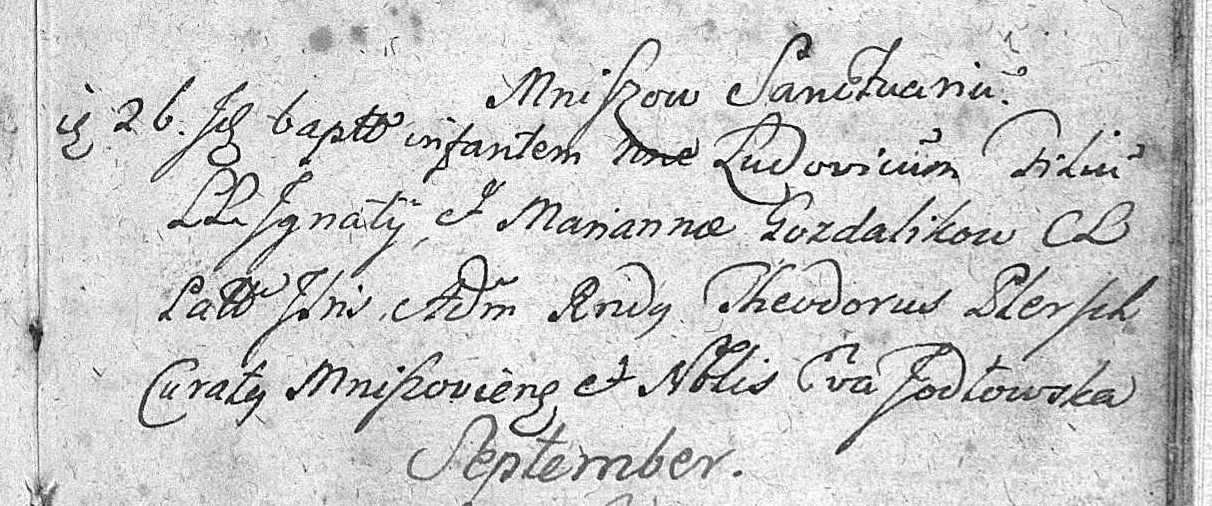 Mniszow Sanctuariũ.
26. Idẽ baptt infantem nñe Ludovicum Filiũ
LL. Ignatij, et Mariannæ Gozdalikow CL
Patt Isri Adm Rndq Theodorus Plersch
Curatq Mniszovieng et Nblis Eva Jodłowska
September.